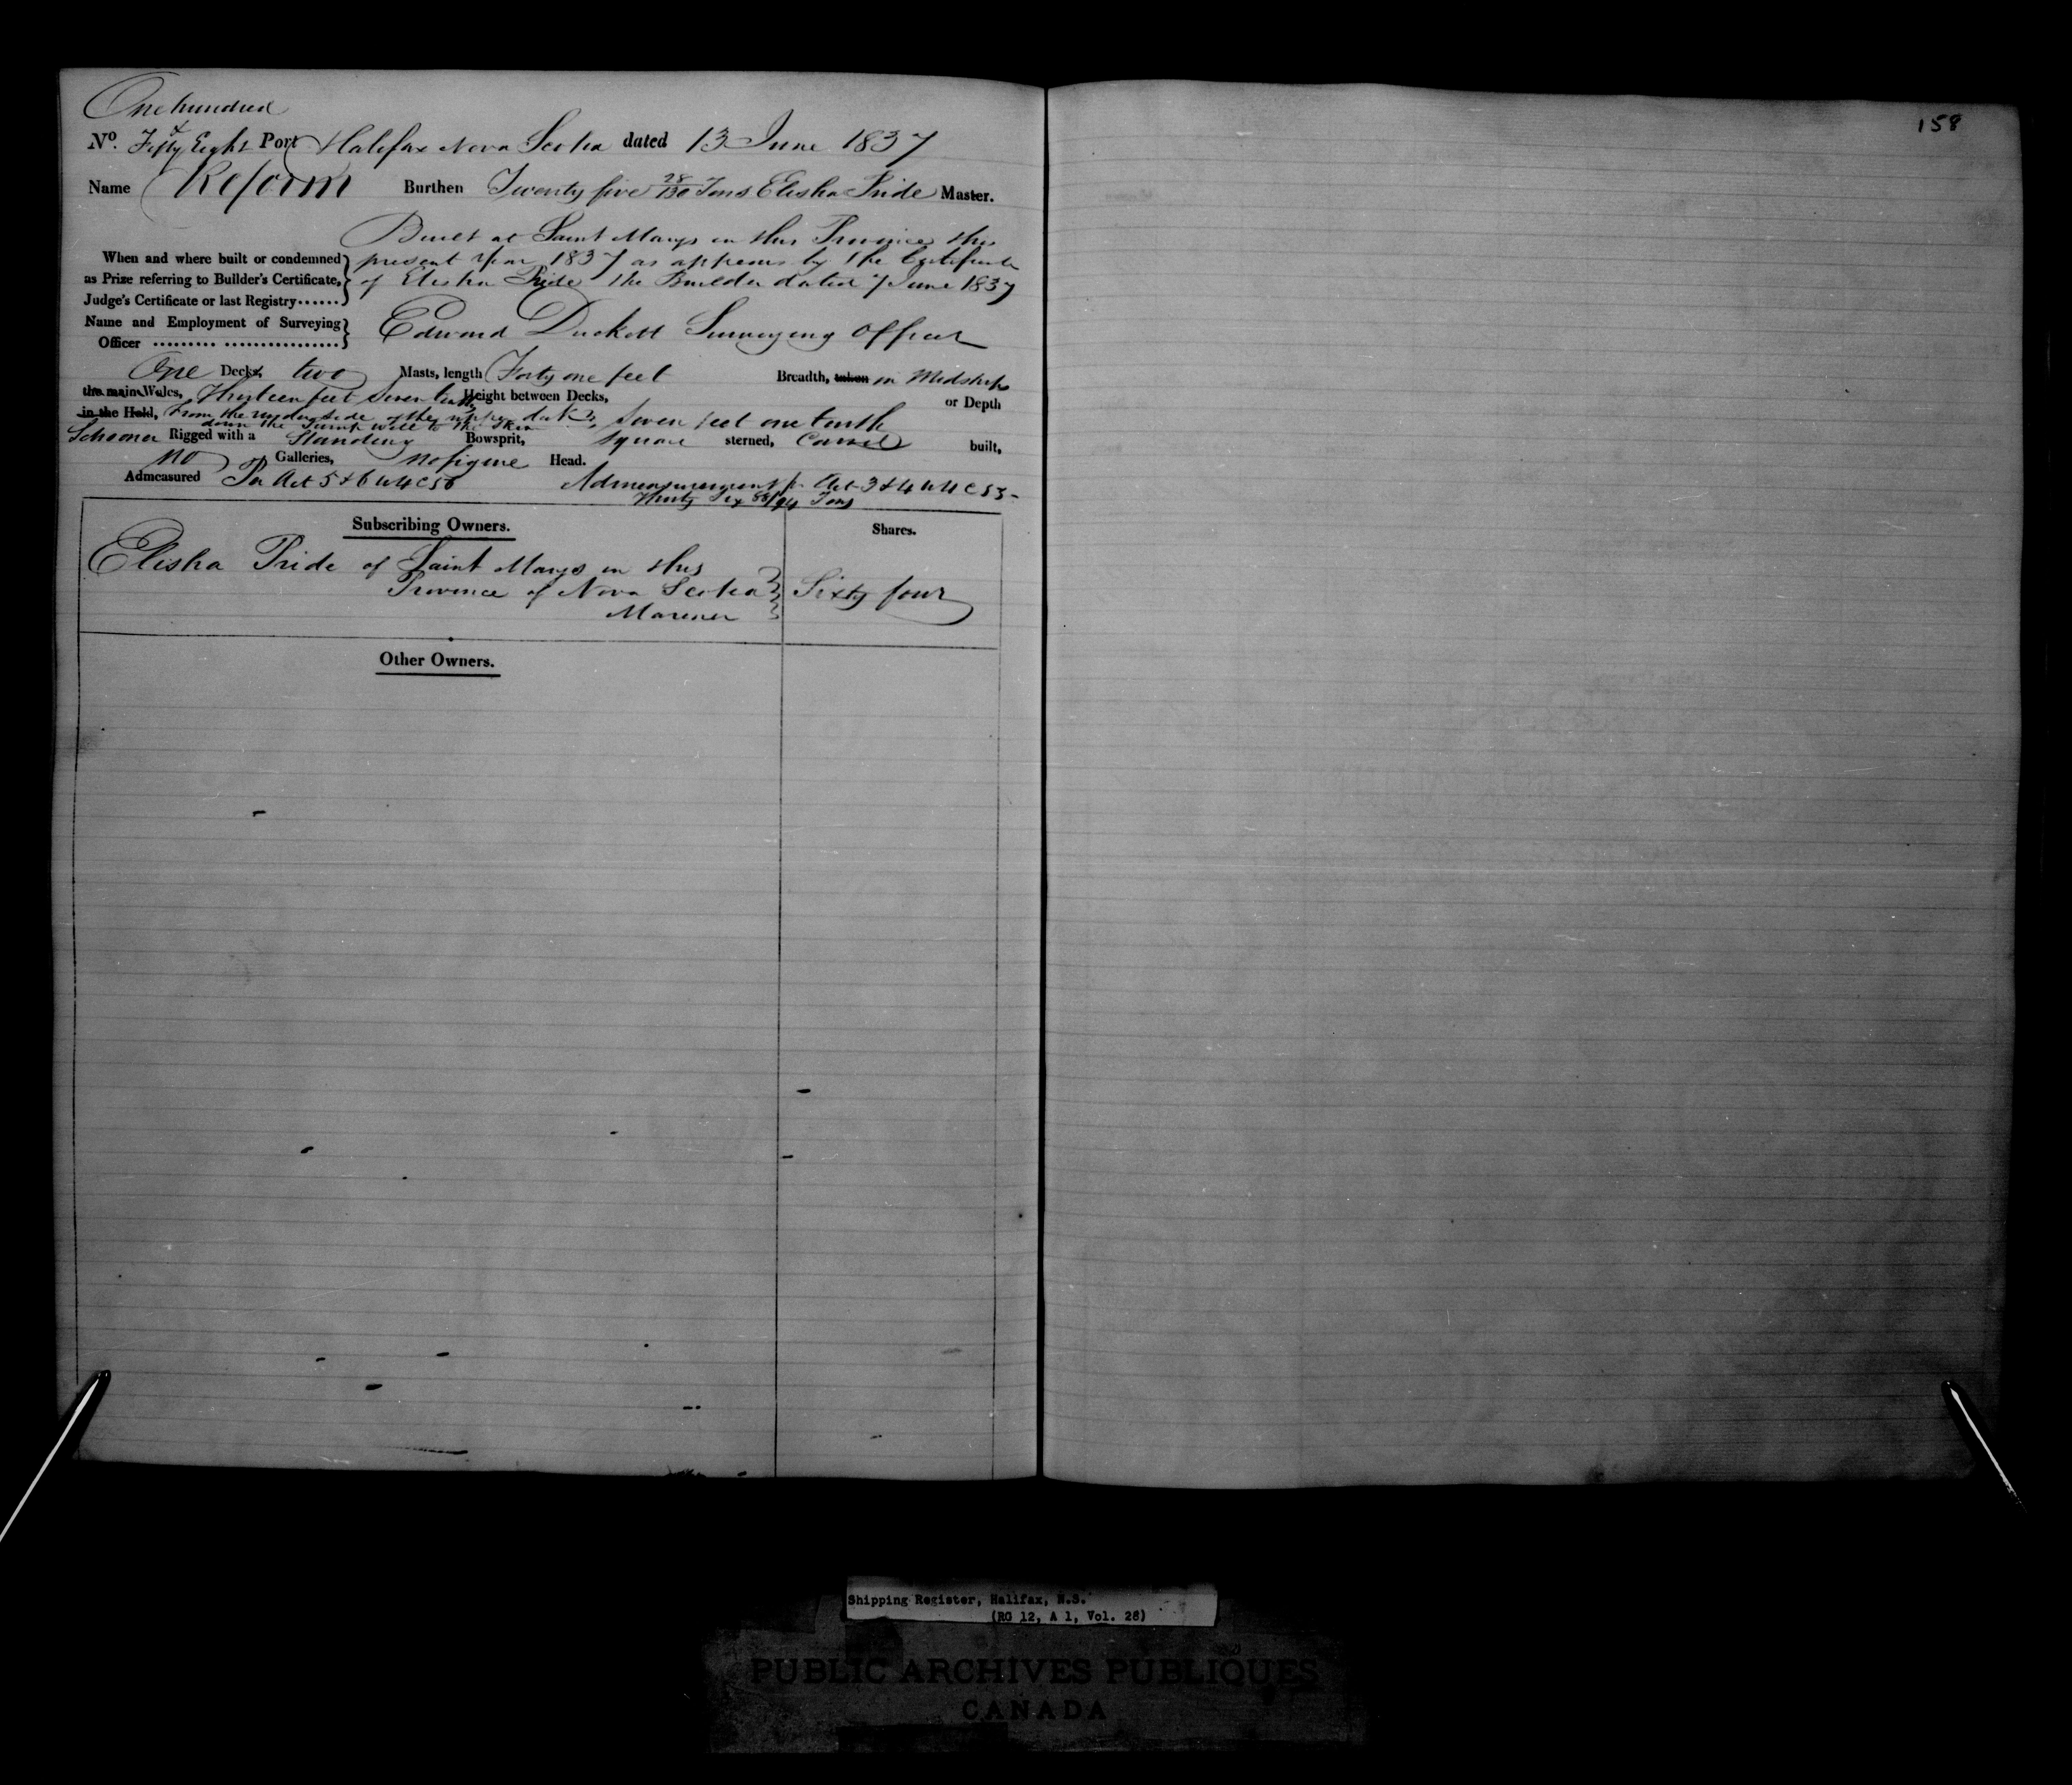 One hundred
No. Fifty & Eight Port Halifax Nova Scotia dated 13 June 1837
Name Reform Burthen Twenty five 28/130 Tons Elisha Pride Master.
Built at Saint Marys in this Province the
When and where built or condemned present year 1837 as appears by the Certificate
as Prize referring to Builder's Certificate, of Elisha Pride the Builder dated 7 June 1837
Judge's Certificate or last Registry......
Name and Employment of Surveying Edward Duckett Surveying Officer
Officer ......... .................
One Decks two Masts, length Forty one feet Breadth, taken in Midships
the main Wales, Thirteen feet seven tenths Height between Decks, or Depth
in the Hold, From the underside of the upper deck seven feet one tenth
down the Pump well to the Skin
Schooner Rigged with a Standing Bowsprit, square sterned, Carvel built,
no Galleries, no figure Head.
Admeasured Per Act 5 & 6 W 4 C 56 Admeasurement pr Act 3 & 4 W 4 C 55-
Thirty Six 88/94 Tons
Subscribing Owners. Shares.
Elisha Pride of Saint Marys in this
Province of Nova Scotia Sixty four
Marener
Other Owners.
158
Shipping Register, Halifax, N.S.
(RG 12, A 1, Vol. 28)
PUBLIC ARCHIVES PUBLIQUES
CANADA